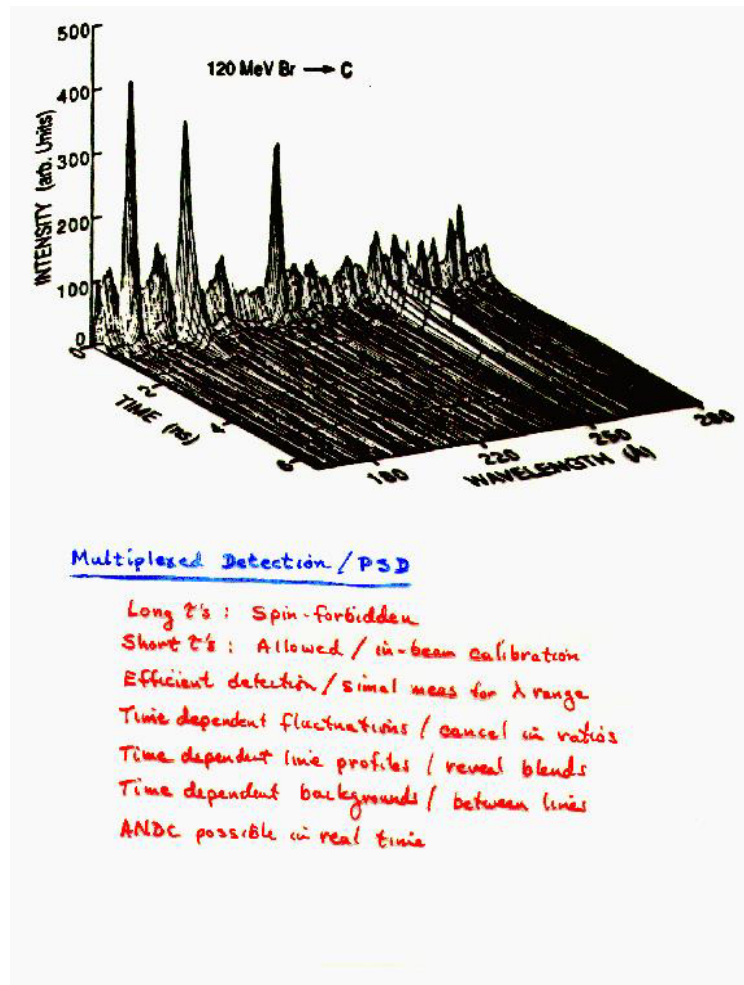 500
120 MeV Br → C
400
300
200
100
0
INTENSITY (arb. Units)
0
2
4
6
TIME (ns)
180
220
250
280
WAVELENGTH (Å)
Multiplexed Detection / PSD
Long τ's : Spin-forbidden
Short τ's : Allowed / in-beam calibration
Efficient detection / simul meas for λ range
Time dependent fluctuations / cancel in ratios
Time dependent line profiles / reveal blends
Time dependent backgrounds / between lines
ANDC possible in real time